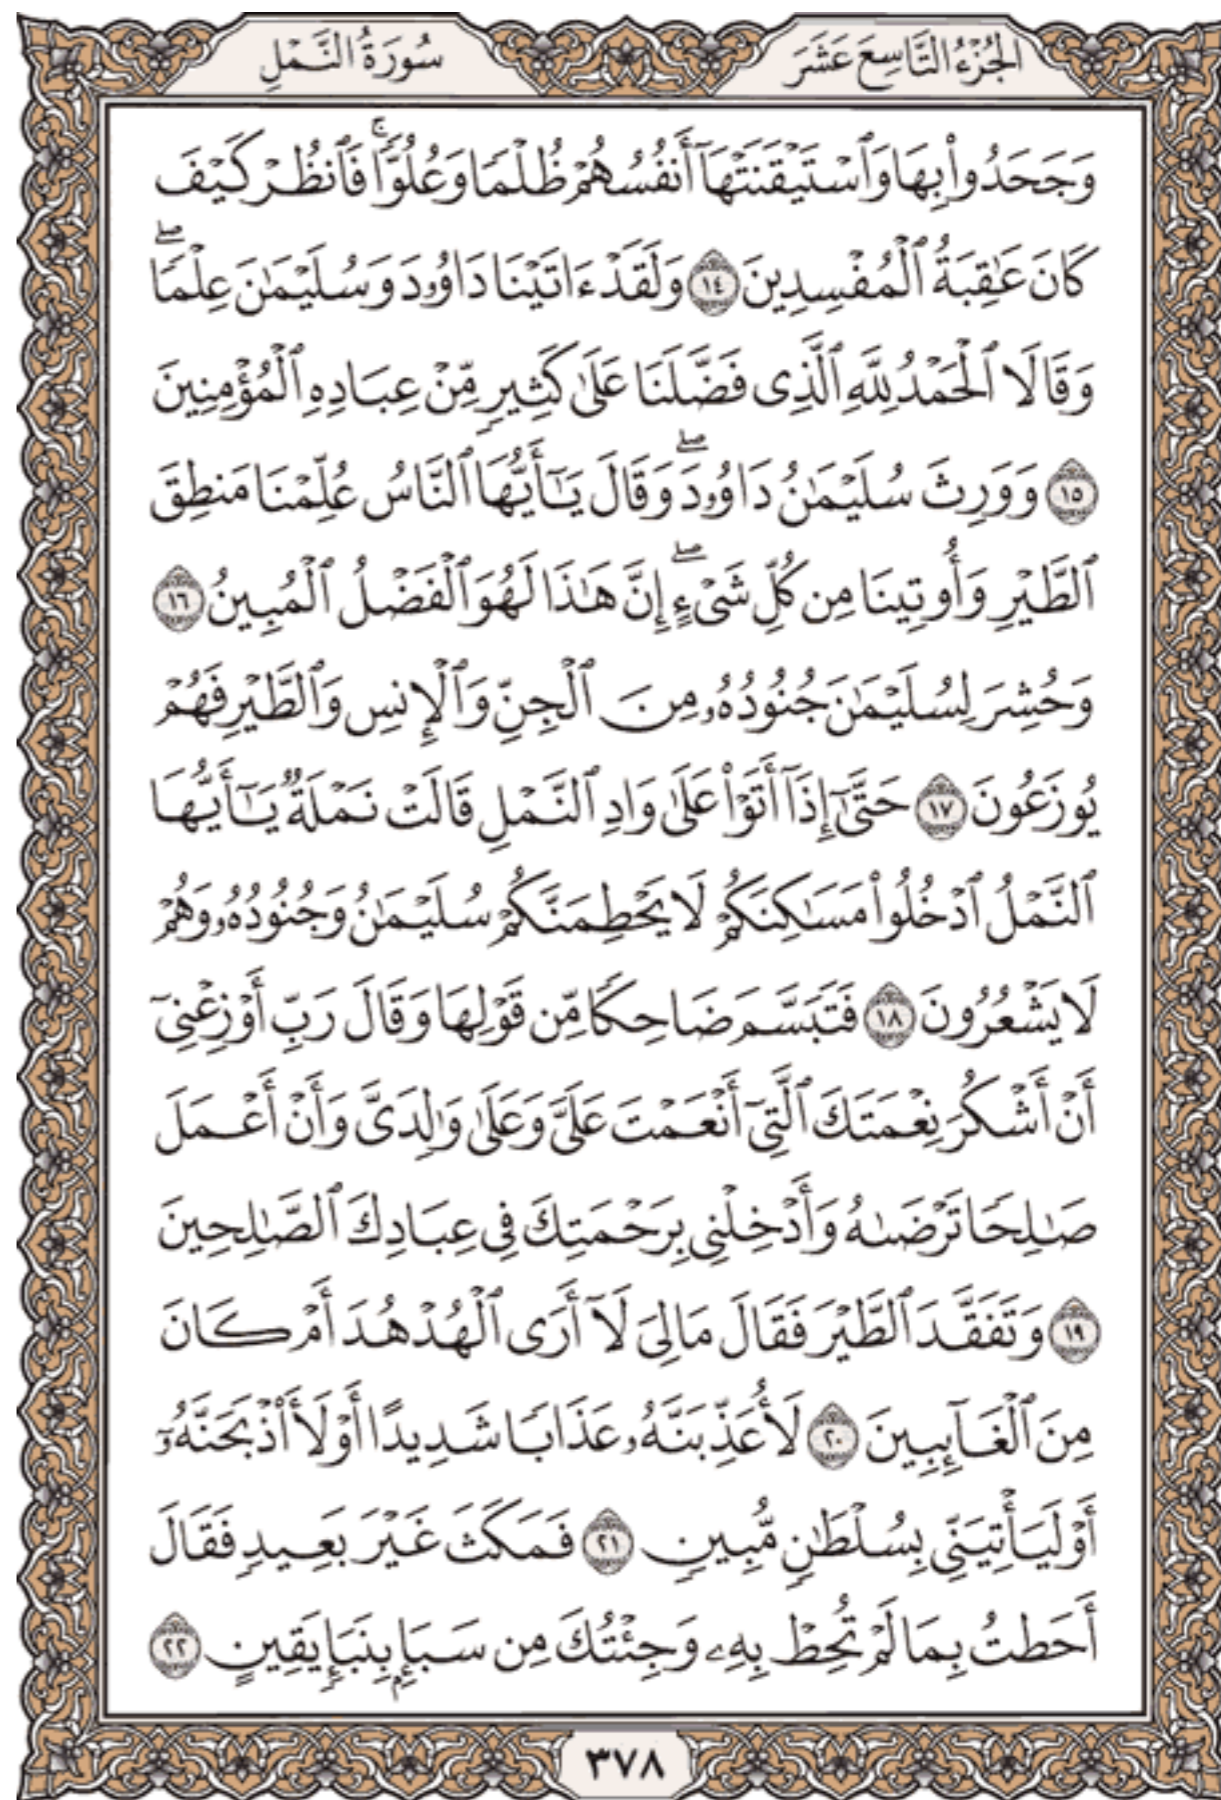 الجُزْءُ التَّاسِعَ عَشَرَ
سُورَةُ النَّمْلِ
وَجَحَدُوا۟ بِهَا وَٱسْتَيْقَنَتْهَآ أَنفُسُهُمْ ظُلْمًا وَعُلُوًّا ۚ فَٱنظُرْ كَيْفَ
كَانَ عَـٰقِبَةُ ٱلْمُفْسِدِينَ ١٤ وَلَقَدْ ءَاتَيْنَا دَاوُۥدَ وَسُلَيْمَـٰنَ عِلْمًا ۖ
وَقَالَا ٱلْحَمْدُ لِلَّهِ ٱلَّذِى فَضَّلَنَا عَلَىٰ كَثِيرٍ مِّنْ عِبَادِهِ ٱلْمُؤْمِنِينَ
١٥ وَوَرِثَ سُلَيْمَـٰنُ دَاوُۥدَ ۖ وَقَالَ يَـٰٓأَيُّهَا ٱلنَّاسُ عُلِّمْنَا مَنطِقَ
ٱلطَّيْرِ وَأُوتِينَا مِن كُلِّ شَىْءٍ ۖ إِنَّ هَـٰذَا لَهُوَ ٱلْفَضْلُ ٱلْمُبِينُ ١٦
وَحُشِرَ لِسُلَيْمَـٰنَ جُنُودُهُۥ مِنَ ٱلْجِنِّ وَٱلْإِنسِ وَٱلطَّيْرِ فَهُمْ
يُوزَعُونَ ١٧ حَتَّىٰٓ إِذَآ أَتَوْا۟ عَلَىٰ وَادِ ٱلنَّمْلِ قَالَتْ نَمْلَةٌ يَـٰٓأَيُّهَا
ٱلنَّمْلُ ٱدْخُلُوا۟ مَسَـٰكِنَكُمْ لَا يَحْطِمَنَّكُمْ سُلَيْمَـٰنُ وَجُنُودُهُۥ وَهُمْ
لَا يَشْعُرُونَ ١٨ فَتَبَسَّمَ ضَاحِكًا مِّن قَوْلِهَا وَقَالَ رَبِّ أَوْزِعْنِىٓ
أَنْ أَشْكُرَ نِعْمَتَكَ ٱلَّتِىٓ أَنْعَمْتَ عَلَىَّ وَعَلَىٰ وَٰلِدَىَّ وَأَنْ أَعْمَلَ
صَـٰلِحًا تَرْضَىٰهُ وَأَدْخِلْنِى بِرَحْمَتِكَ فِى عِبَادِكَ ٱلصَّـٰلِحِينَ
١٩ وَتَفَقَّدَ ٱلطَّيْرَ فَقَالَ مَالِىَ لَآ أَرَى ٱلْهُدْهُدَ أَمْ كَانَ
مِنَ ٱلْغَآئِبِينَ ٢٠ لَأُعَذِّبَنَّهُۥ عَذَابًا شَدِيدًا أَوْ لَأَا۟ذْبَحَنَّهُۥٓ
أَوْ لَيَأْتِيَنِّى بِسُلْطَـٰنٍ مُّبِينٍ ٢١ فَمَكَثَ غَيْرَ بَعِيدٍ فَقَالَ
أَحَطتُ بِمَا لَمْ تُحِطْ بِهِۦ وَجِئْتُكَ مِن سَبَإٍۭ بِنَبَإٍ يَقِينٍ ٢٢
٣٧٨